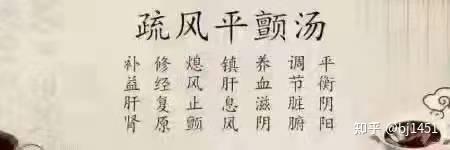 疏风平颤汤
补益肝肾
修经复原
熄风止颤
镇肝息风
养血滋阴
调节脏腑
平衡阴阳
知乎 @bj1451